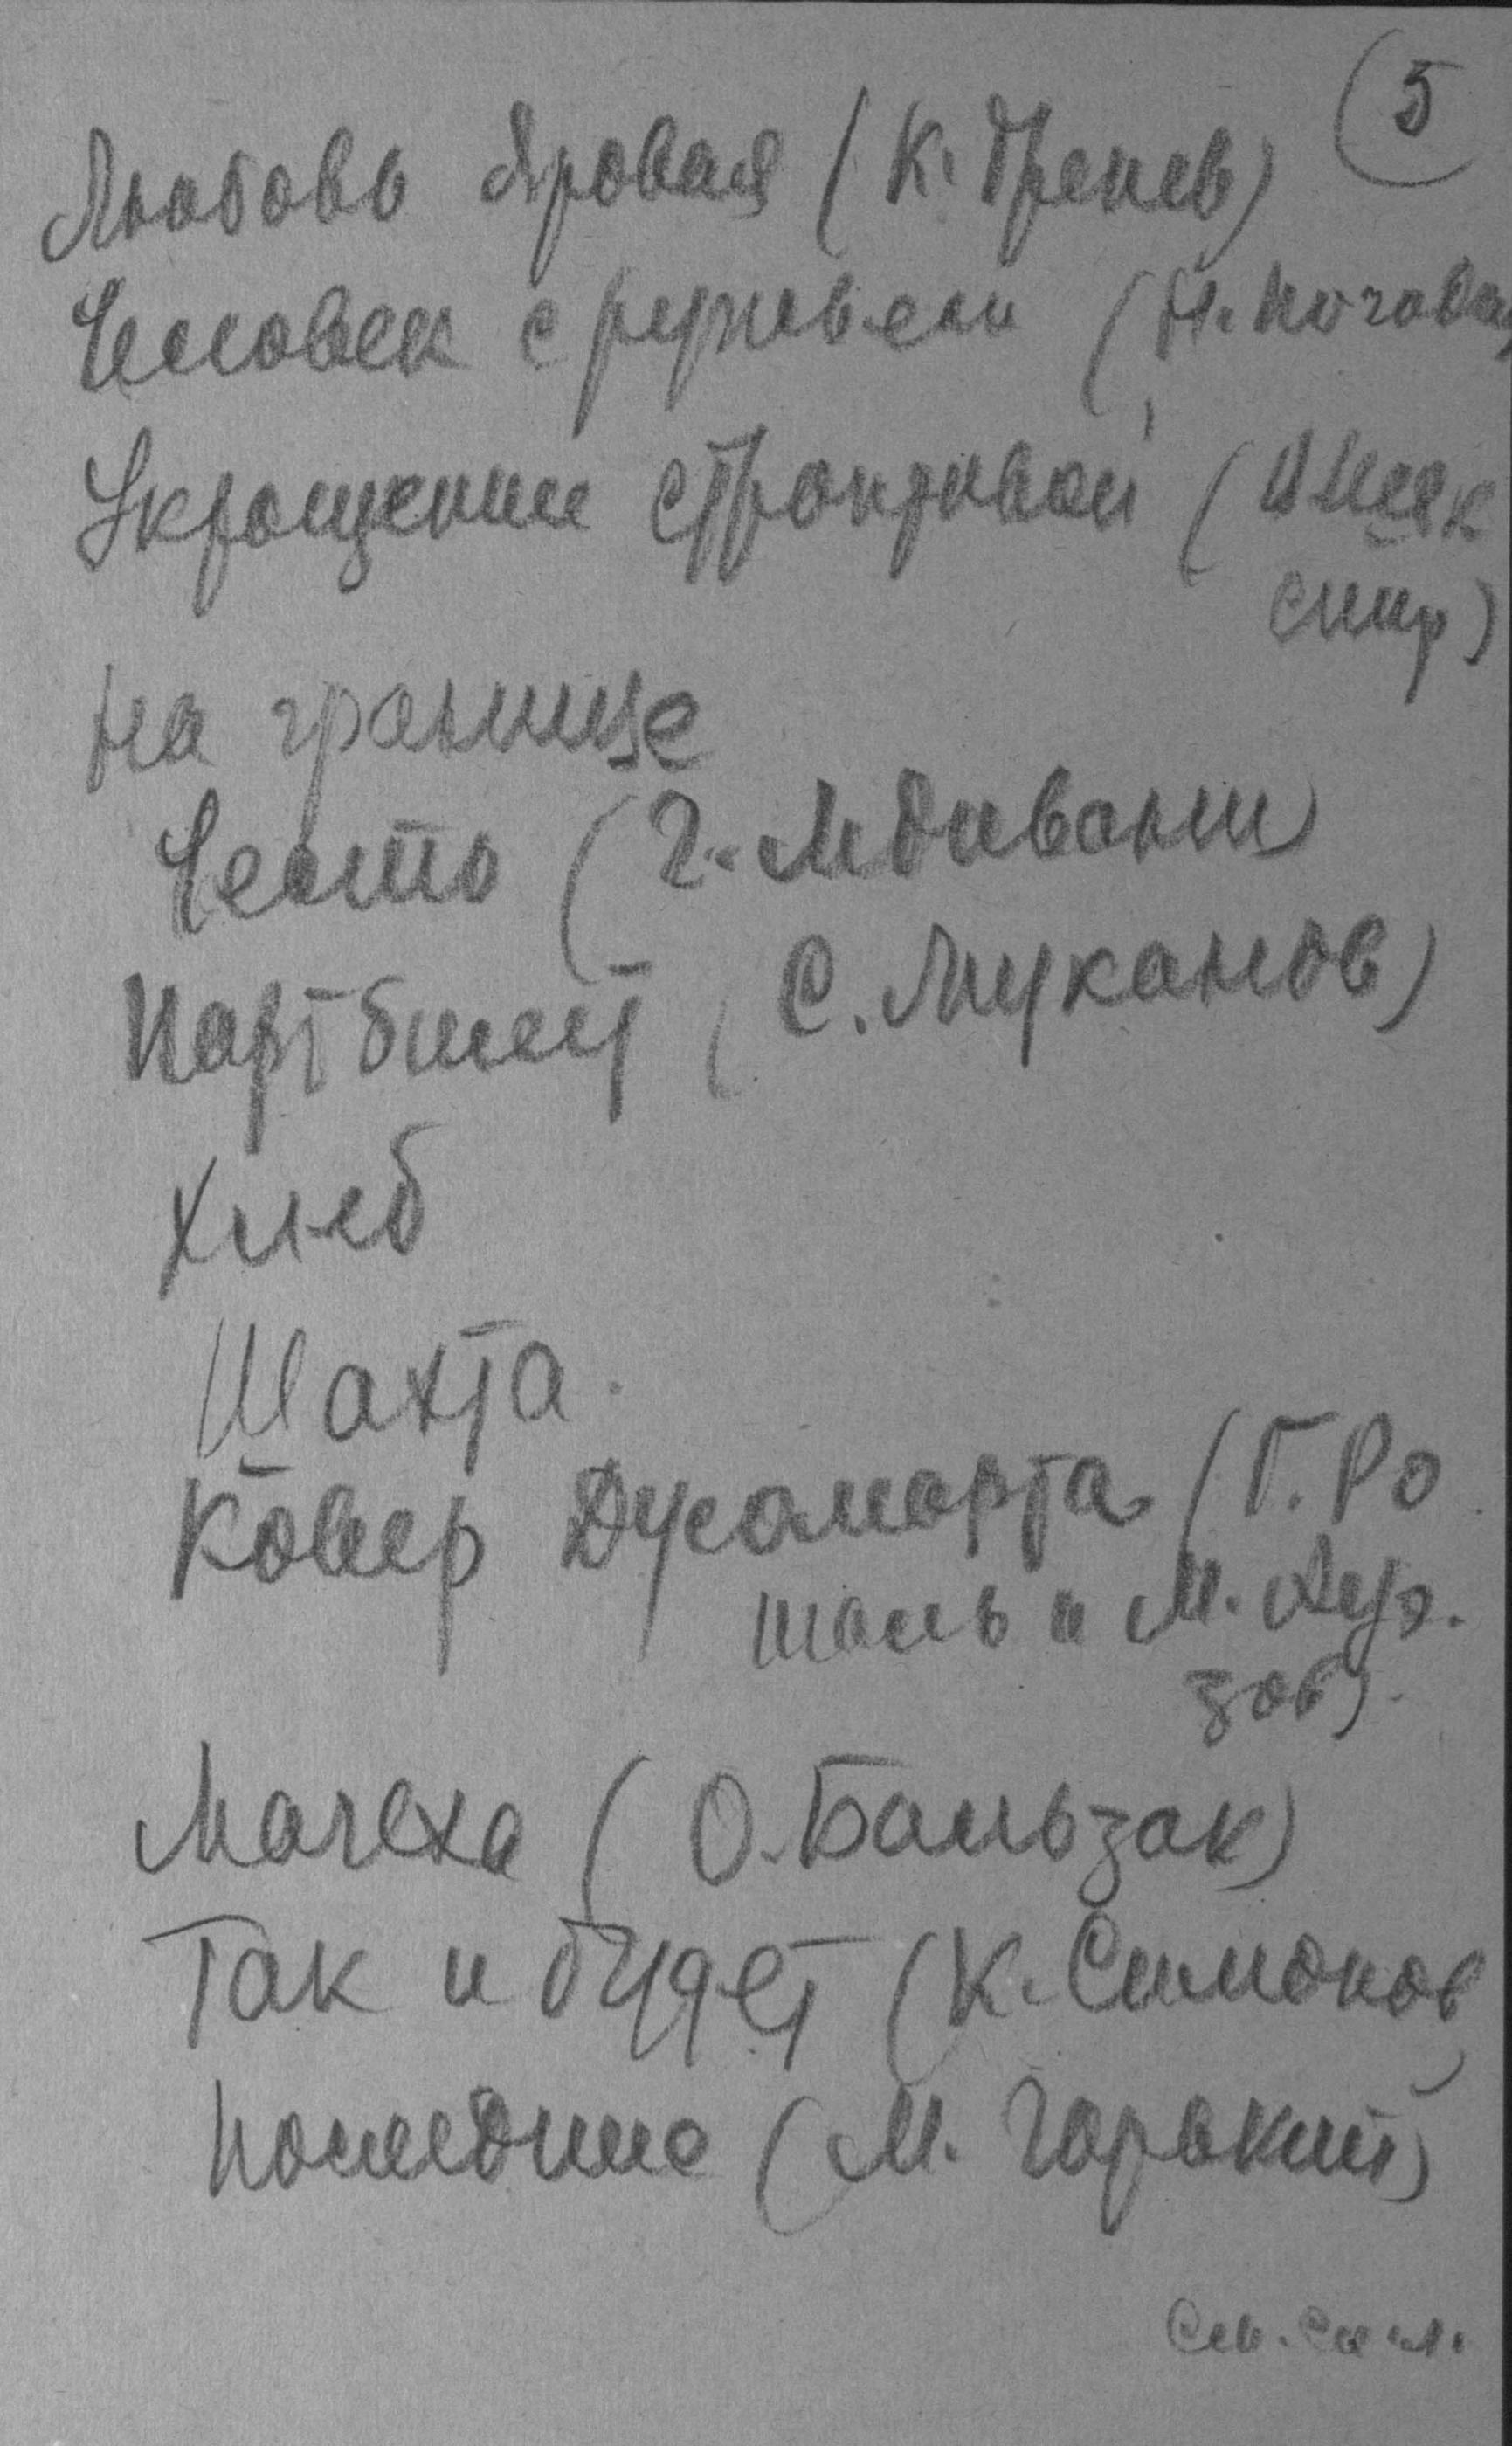 5
Любовь Яровая (К. Тренев)
Человек с ружьем (Н. Погодин
Укрощение строптивой (Шек
спир)
На границе
Честь (Г. Мдивани
Партбилет (С. Муканов)
Хлеб
Шахта.
Ковер Дусамарта (Г. Ро
шаль и М. Ауэ.
зов).
Мачеха (О. Бальзак)
Так и будет (К. Симонов)
Последние (М. Горький)
См. сл. л.